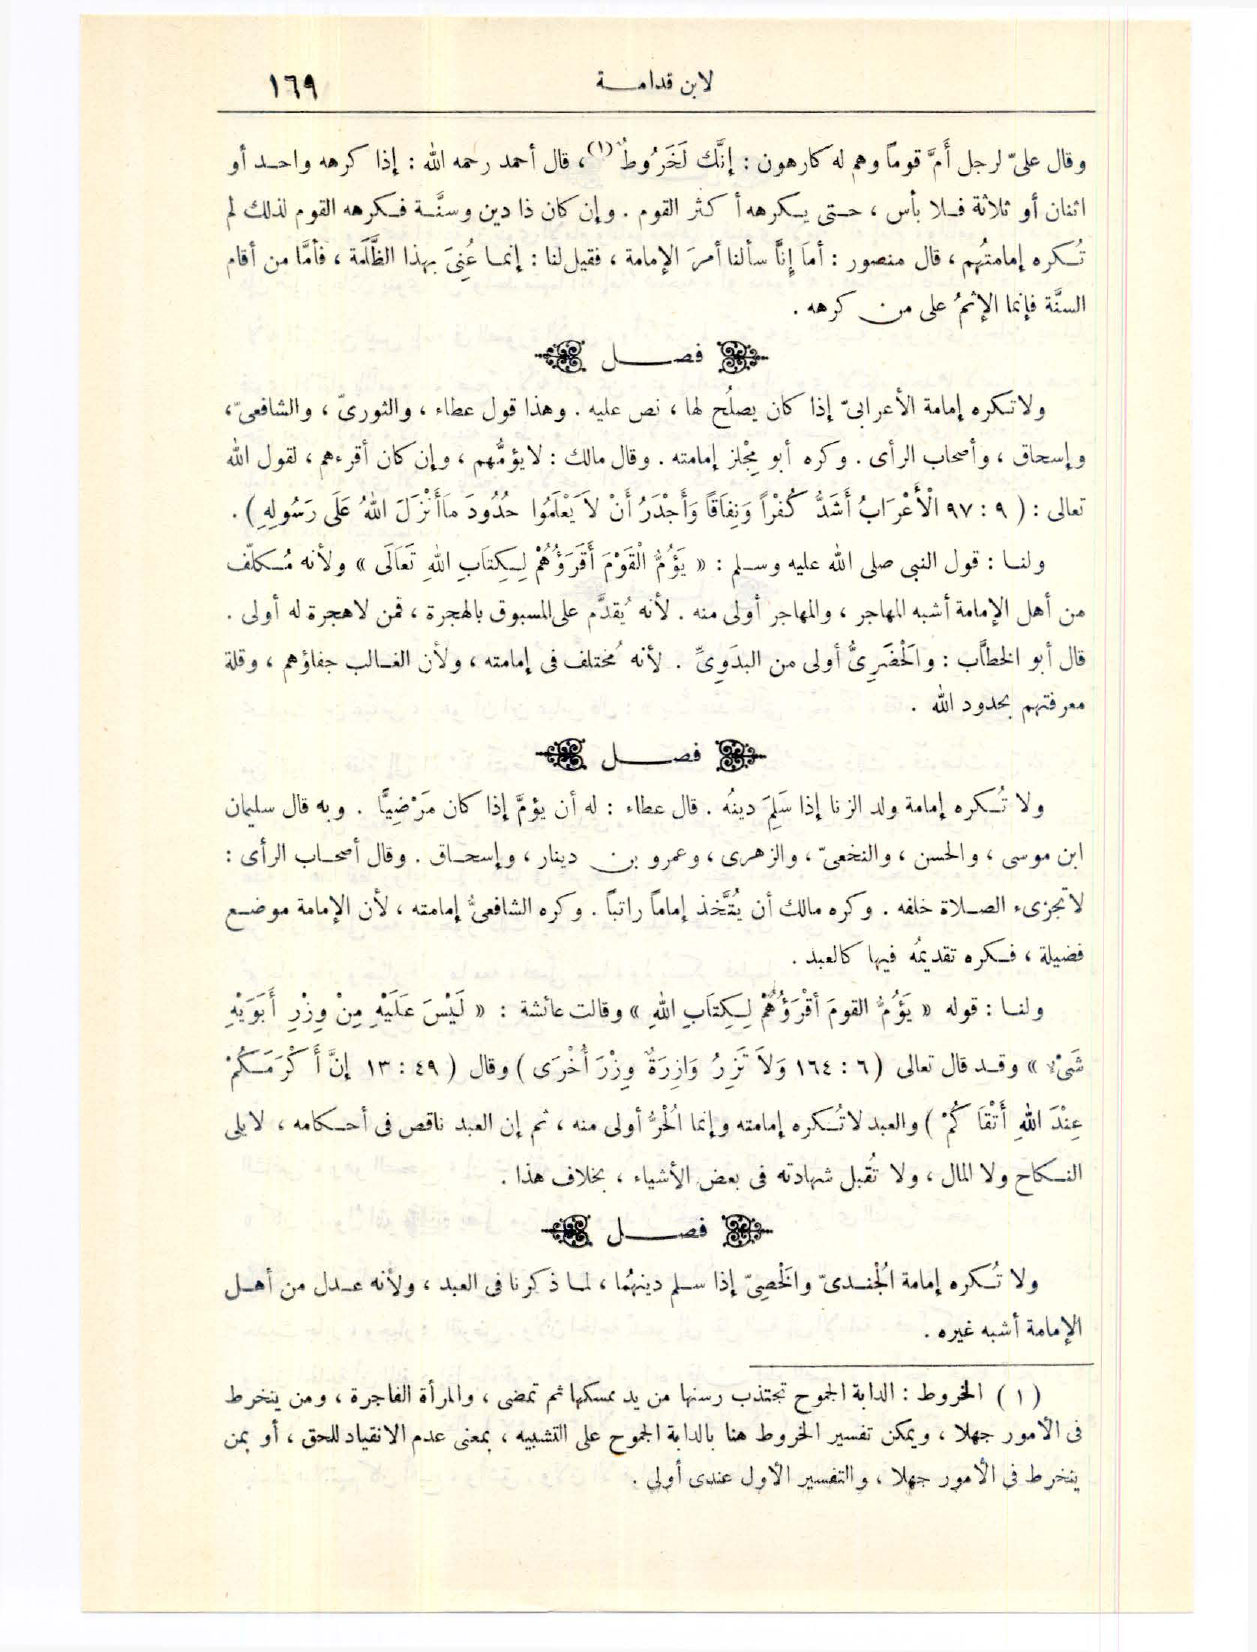 لابن قدامــة ١٦٩
وقال علىّ لرجل أَمَّ قوماً وهم له كارهون : إنَّك لَخَرُوطٌ (١) ، قال أحمد رحمه الله : إذا كرهه واحد أو
اثنان أو ثلاثة فلا بأس ، حتى يكرهه أكثر القوم . وإن كان ذا دين وسنَّة فكرهه القوم لذلك لم
تُكره إمامتُهم ، قال منصور : أمَا إنَّا سألنا أمرَ الإمامة ، فقيل لنا : إنما عُنِىَ بهذا الظَّلَمَة ، فأمَّا من أقام
السنَّة فإنما الإثمُ على من كرهه .
فصــل
ولا تكره إمامة الأعرابىّ إذا كان يصلُح لها ، نص عليه . وهذا قول عطاء ، والثورىّ ، والشافعىّ ،
وإسحاق ، وأصحاب الرأى . وكره أبو مِجْلز إمامته . وقال مالك : لا يؤمُّهم ، وإن كان أقرءهم ، لقول الله
تعالى : ( ٩ : ٩٧ الْأَعْرَابُ أَشَدُّ كُفْراً وَنِفَاقًا وَأَجْدَرُ أَنْ لاَ يَعْلَمُوا حُدُودَ مَا أَنْزَلَ اللهُ عَلَى رَسُولِهِ ) .
ولنا : قول النبى صلى الله عليه وسلم : « يَؤُمُّ الْقَوْمَ أَقْرَؤُهُمْ لِكِتَابِ اللهِ تَعَالَى » ولأنه مُكلّف
من أهل الإمامة أشبه المهاجر ، والمهاجر أولى منه . لأنه يُقدَّم على المسبوق بالهجرة ، فمن لا هجرة له أولى .
قال أبو الخطاَّب : والَحْضَرِىُّ أولى من البدَوِىِّ . لأنه مُختلف فى إمامته ، ولأن الغالب جفاؤهم ، وقلة
معرفتهم بحدود الله .
فصــل
ولا تُكره إمامة ولد الزنا إذا سَلِمَ دينُه . قال عطاء : له أن يؤمَّ إذا كان مَرْضِيًّا . وبه قال سليمان
ابن موسى ، والحسن ، والنخعىّ ، والزهرى ، وعمرو بن دينار ، وإسحاق . وقال أصحاب الرأى :
لا تجزىء الصلاة خلفه . وكره مالك أن يُتَّخذ إماماً راتباً . وكره الشافعىُّ إمامته ، لأن الإمامة موضع
فضيلة ، فكره تقديمُه فيها كالعبد .
ولنا : قوله « يَؤُمُّ القومَ أقْرَؤُهُمْ لِكِتَابِ اللهِ » وقالت عائشة : « لَيْسَ عَلَيْهِ مِنْ وِزْرِ أَبَوَيْهِ
شَىْءٌ » وقد قال تعالى ( ٦ : ١٦٤ وَلاَ تَزِرُ وَازِرَةٌ وِزْرَ أُخْرَى ) وقال ( ٤٩ : ١٣ إنَّ أَكْرَمَكُمْ
عِنْدَ اللهِ أَتْقَاكُمْ ) والعبد لا تُكره إمامته وإنما الْحُرُّ أولى منه ، ثم إن العبد ناقص فى أحكامه ، لا يلى
النكاح ولا المال ، ولا تُقبل شهادته فى بعض الأشياء ، بخلاف هذا .
فصــل
ولا تُكره إمامة الْجُندىّ والَخْصِىّ إذا سلم دينهُما ، لما ذكرنا فى العبد ، ولأنه عدل من أهل
الإمامة أشبه غيره .
( ١ ) الخروط : الدابة الجموح تجتذب رسنها من يد ممسكها ثم تمضى ، والمرأة الفاجرة ، ومن يتخرط
فى الأمور جهلا ، ويمكن تفسير الخروط هنا بالدابة الجموح على التشبيه ، بمعنى عدم الانقياد للحق ، أو بمن
يتخرط فى الأمور جهلا ، والتفسير الأول عندى أولى .